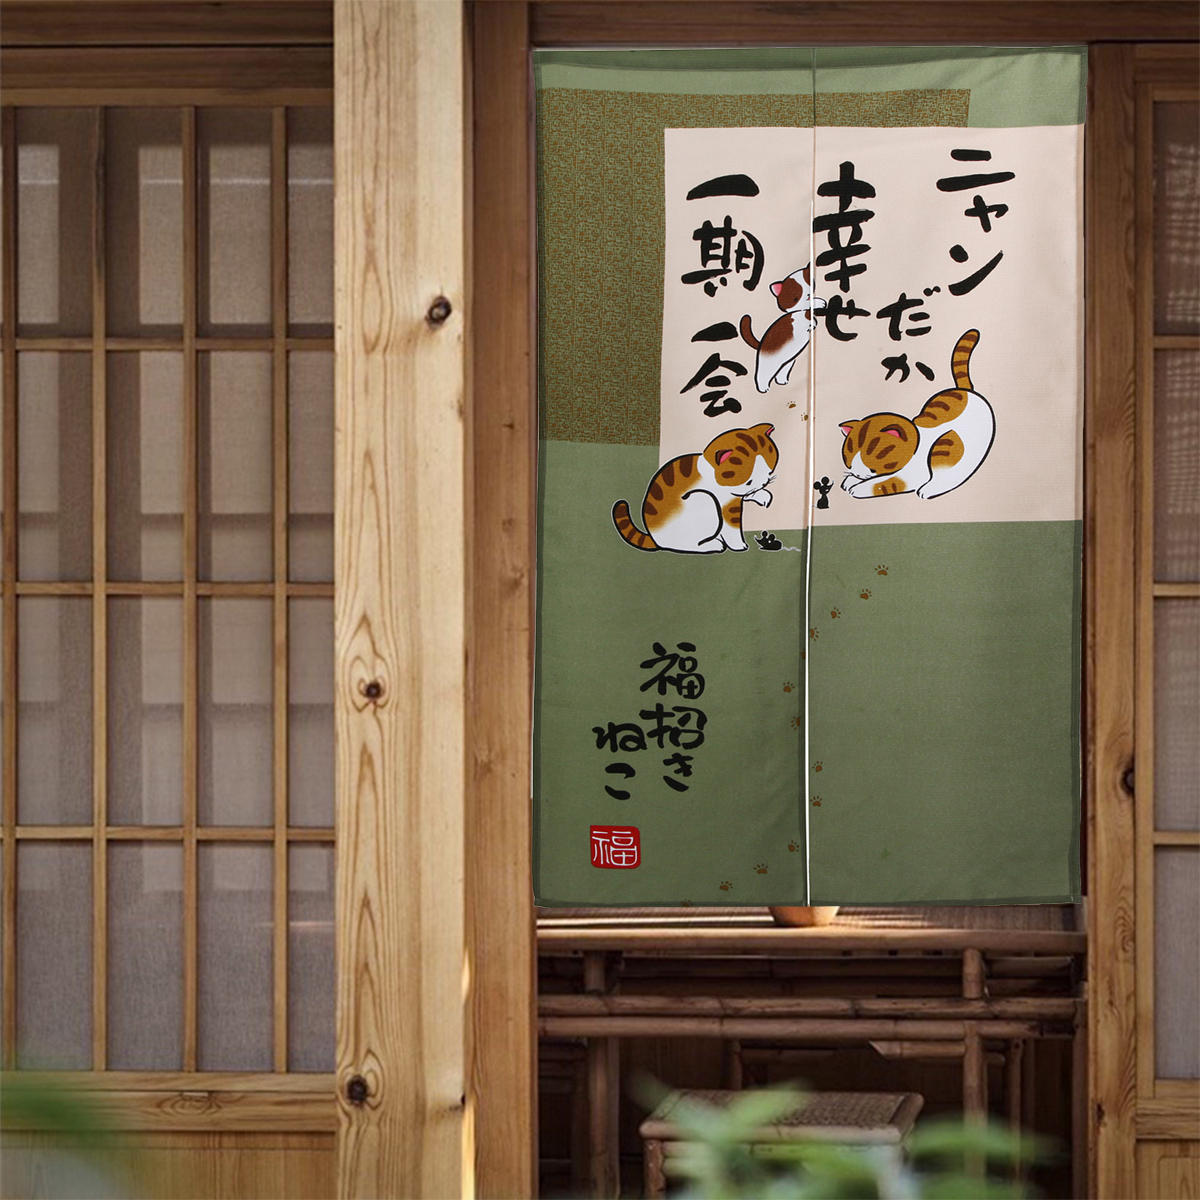 ニャン
だか
幸せ
一期一会
福招き
ねこ
福